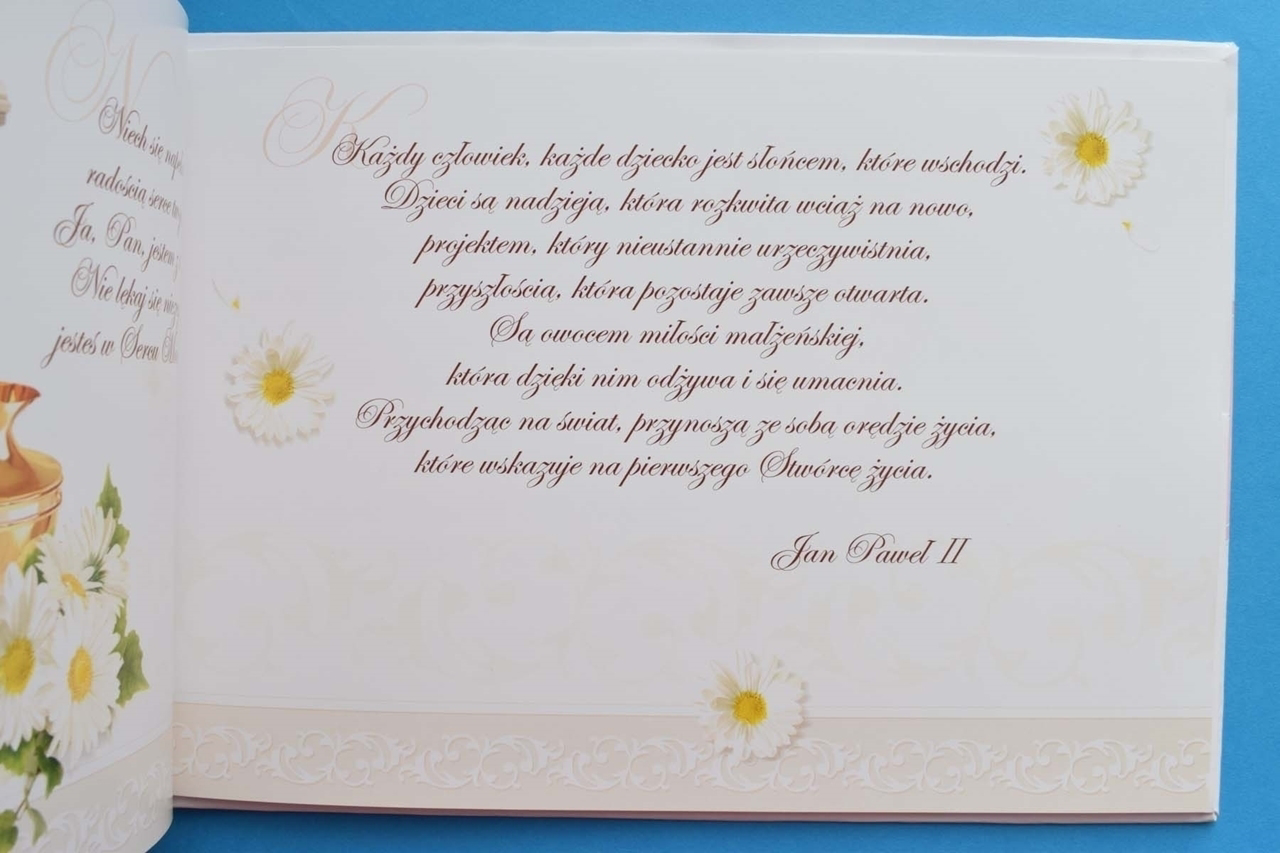 N
Niech się
radością serce
Ja, Pan, jestem
Nie lękaj się
jesteś w Sercu
K
Każdy człowiek, każde dziecko jest słońcem, które wschodzi.
Dzieci są nadzieją, która rozkwita wciąż na nowo,
projektem, który nieustannie urzeczywistnia,
przyszłością, która pozostaje zawsze otwarta.
Są owocem miłości małżeńskiej,
która dzięki nim odżywa i się umacnia.
Przychodząc na świat, przynoszą ze sobą orędzie życia,
które wskazuje na pierwszego Stwórcę życia.
Jan Paweł II